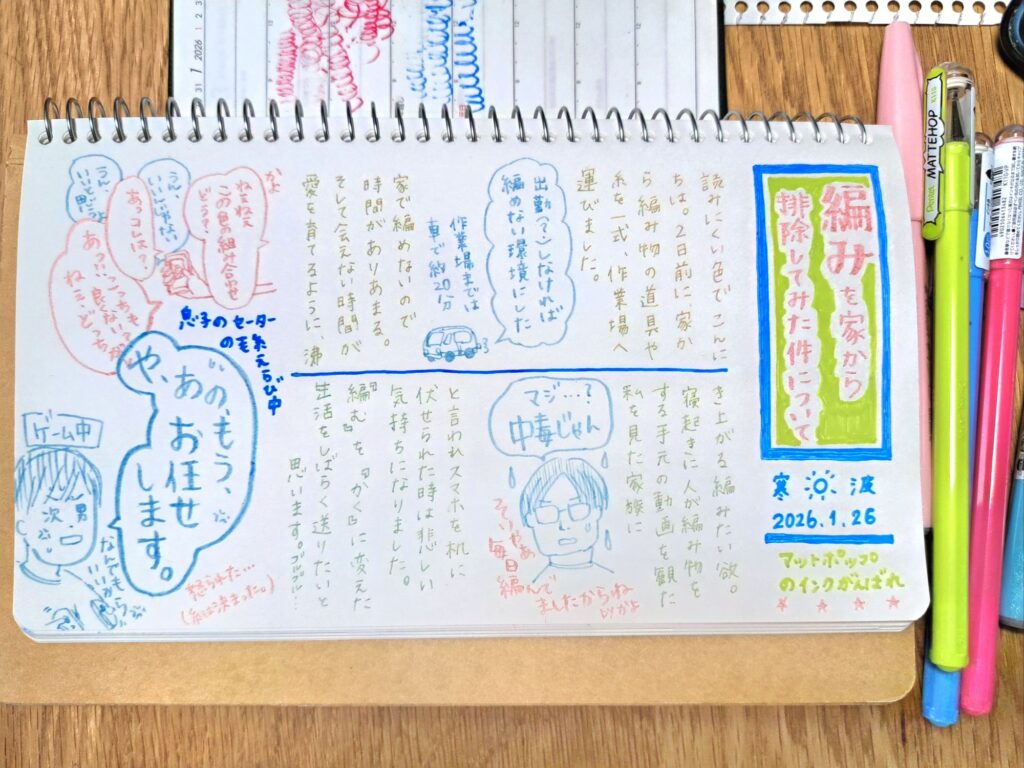 編みを家から
排除してみた件について
寒 波
2026.1.26
マットホップ
のインクがんばれ
読みにくい色でこんに
ちは。2日前に家か
ら編み物の道具や
糸を一式、作業場へ
運びました。
出勤(?)しなければ
編めない環境にした
作業場までは
車で約20分
家で編めないので
時間がありあまる。
そして会えない時間が
愛を育てるように、沸
き上がる編みたい欲。
寝起きに人が編み物を
する手元の動画を観た
私を見た家族に
マジ…?
中毒じゃん
そりゃあ
毎日
編んで
ましたからね
byかよ
と言われスマホを机に
伏せられた時は悲しい
気持ちになりました。
『編む』を『かく』に変えた
生活をしばらく送りたいと
思います。
かよ
ねえねえ
この色の組み合わせ
どう?
うん、
いいじゃない
あっコレは?
うん、
いいと思うよ
あっ!!こっちも
良くない?
ねえ、どっち
息子のセーター
の毛糸えらび中
あの、もう、
や、お任せ
します。
ゲーム中
次男
なんでも
いいから
怒られた…
(糸は決まった。)
Pentel
MATTEHOP
K110
2026
1
2
3
31